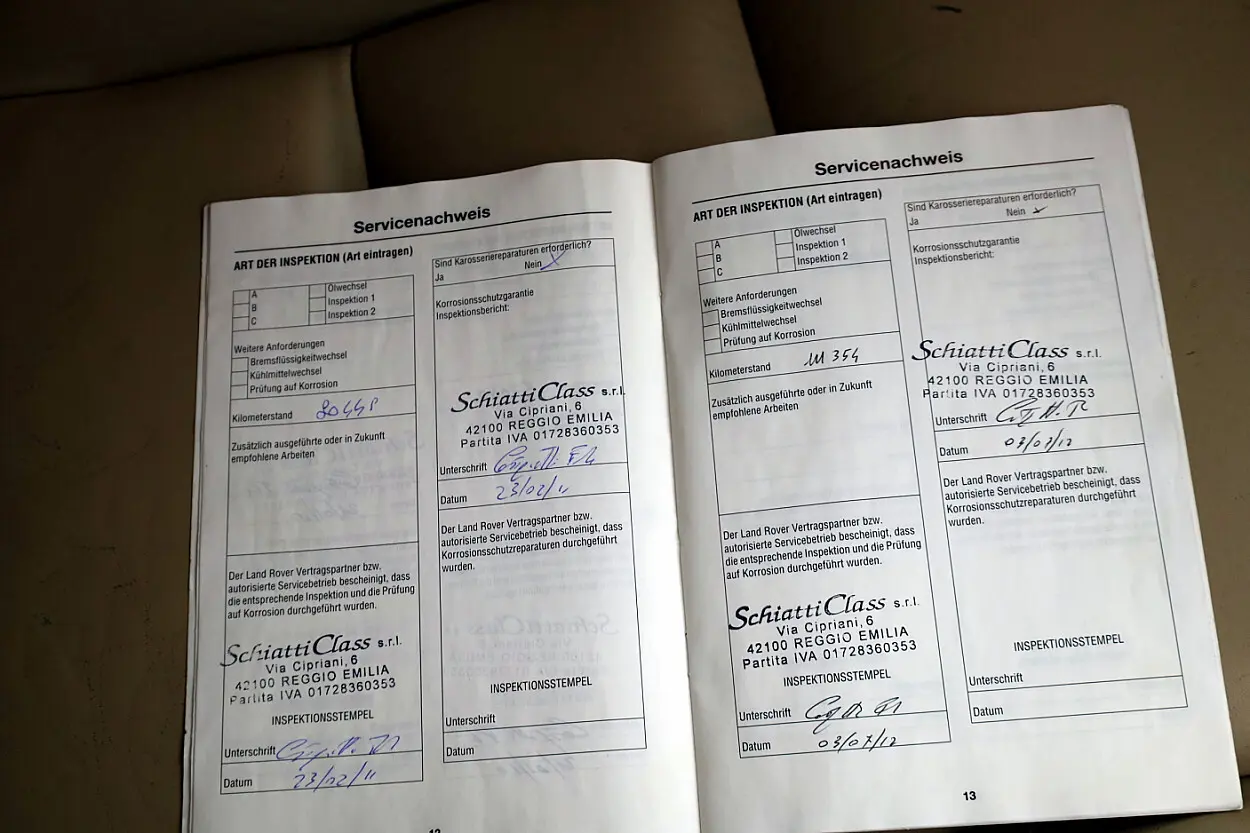 Servicenachweis
ART DER INSPEKTION (Art eintragen)
A
B
C
Ölwechsel
Inspektion 1
Inspektion 2
Weitere Anforderungen
Bremsflüssigkeitwechsel
Kühlmittelwechsel
Prüfung auf Korrosion
Kilometerstand
Zusätzlich ausgeführte oder in Zukunft
empfohlene Arbeiten
Der Land Rover Vertragspartner bzw.
autorisierte Servicebetrieb bescheinigt, dass
die entsprechende Inspektion und die Prüfung
auf Korrosion durchgeführt wurden.
Schiatti Class s.r.l.
Via Cipriani, 6
42100 REGGIO EMILIA
Partita IVA 01728360353
INSPEKTIONSSTEMPEL
Unterschrift
Datum 23/02/11
Sind Karosseriereparaturen erforderlich?
Ja Nein
Korrosionsschutzgarantie
Inspektionsbericht:
Schiatti Class s.r.l.
Via Cipriani, 6
42100 REGGIO EMILIA
Partita IVA 01728360353
Unterschrift
Datum 23/02/11
Der Land Rover Vertragspartner bzw.
autorisierte Servicebetrieb bescheinigt, dass
Korrosionsschutzreparaturen durchgeführt
wurden.
INSPEKTIONSSTEMPEL
Unterschrift
Datum
Servicenachweis
ART DER INSPEKTION (Art eintragen)
A
B
C
Ölwechsel
Inspektion 1
Inspektion 2
Weitere Anforderungen
Bremsflüssigkeitwechsel
Kühlmittelwechsel
Prüfung auf Korrosion
Kilometerstand
Zusätzlich ausgeführte oder in Zukunft
empfohlene Arbeiten
Der Land Rover Vertragspartner bzw.
autorisierte Servicebetrieb bescheinigt, dass
die entsprechende Inspektion und die Prüfung
auf Korrosion durchgeführt wurden.
Schiatti Class s.r.l.
Via Cipriani, 6
42100 REGGIO EMILIA
Partita IVA 01728360353
INSPEKTIONSSTEMPEL
Unterschrift
Datum 03/07/12
Sind Karosseriereparaturen erforderlich?
Ja Nein
Korrosionsschutzgarantie
Inspektionsbericht:
Schiatti Class s.r.l.
Via Cipriani, 6
42100 REGGIO EMILIA
Partita IVA 01728360353
Unterschrift
Datum 03/07/12
Der Land Rover Vertragspartner bzw.
autorisierte Servicebetrieb bescheinigt, dass
Korrosionsschutzreparaturen durchgeführt
wurden.
INSPEKTIONSSTEMPEL
Unterschrift
Datum
13